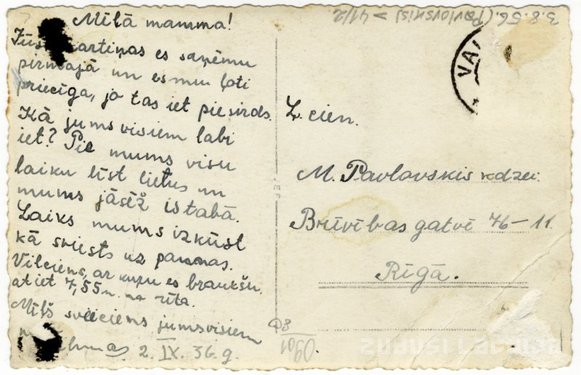 Mīļā mamma!
kartiņas es saņēmu
pirmajā un esmu ļoti
priecīga, jo tas iet pie sirds.
Kā jums visiem labi
iet? Pie mums visu
laiku līst lietus un
mums jāsēž istabā.
Laiks mums izkūst
kā sviests uz pannas.
Vilciens, ar kuŗu es braukšu,
atiet 7,55 m. no rīta.
Mīļš sveiciens jums visiem
2. IX. 36. g.
3.8.56. (Pavlovskis) = 41/2
VA
Z. cien.
M. Pavlovskis kdzei
Brīvības gatvē 76-11
Rīgā.